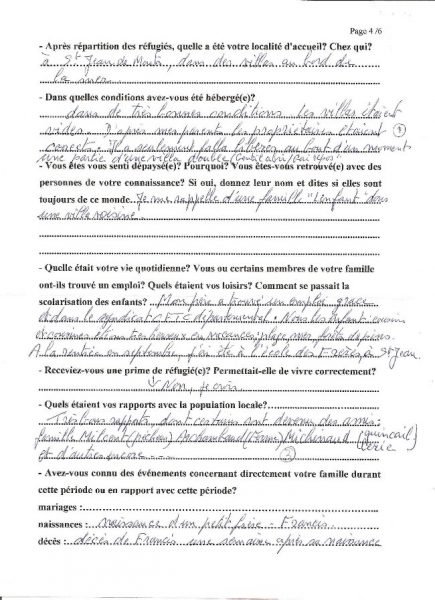 Page 4 /6
- Après répartition des réfugiés, quelle a été votre localité d'accueil? Chez qui?
à St Jean de Monts, dans des villas au bord de
la mer.
- Dans quelles conditions avez-vous été hébergé(e)?
dans de très bonnes conditions. Les villas étaient
vides. D'après mes parents les propriétaires étaient ①
corrects. Il a seulement fallu libérer au bout d'un moment
une partie d'une villa double (Gentil abri/Gai repos"
- Vous êtes vous senti dépaysé(e)? Pourquoi? Vous êtes-vous retrouvé(e) avec des
personnes de votre connaissance? Si oui, donnez leur nom et dites si elles sont
toujours de ce monde. Je me rappelle d'une famille "Lenfant" dans
une villa voisine.
- Quelle était votre vie quotidienne? Vous ou certains membres de votre famille
ont-ils trouvé un emploi? Quels étaient vos loisirs? Comment se passait la
scolarisation des enfants? Mon père a trouvé un emploi grâce
et dans le syndicat départemental. Nous les enfants cousins
et cousines étions très heureux en vacances, plage, mer, forêts de pins.
A la rentrée en septembre, j'en été à l'école des Frères à St Jean.
- Receviez-vous une prime de réfugié(e)? Permettait-elle de vivre correctement?
Non, je crois
- Quels étaient vos rapports avec la population locale?
Très bons rapports, dont certains sont devenus des amis:
famille Milcent (pêcheur) Archambaud (Ferme) Michenaud (quincaillerie)
et d'autres encore ②
- Avez-vous connu des événements concernant directement votre famille durant
cette période ou en rapport avec cette période?
mariages :
naissances : naissance d'un petit frère : Francis.
décès : décès de Francis une semaine après sa naissance